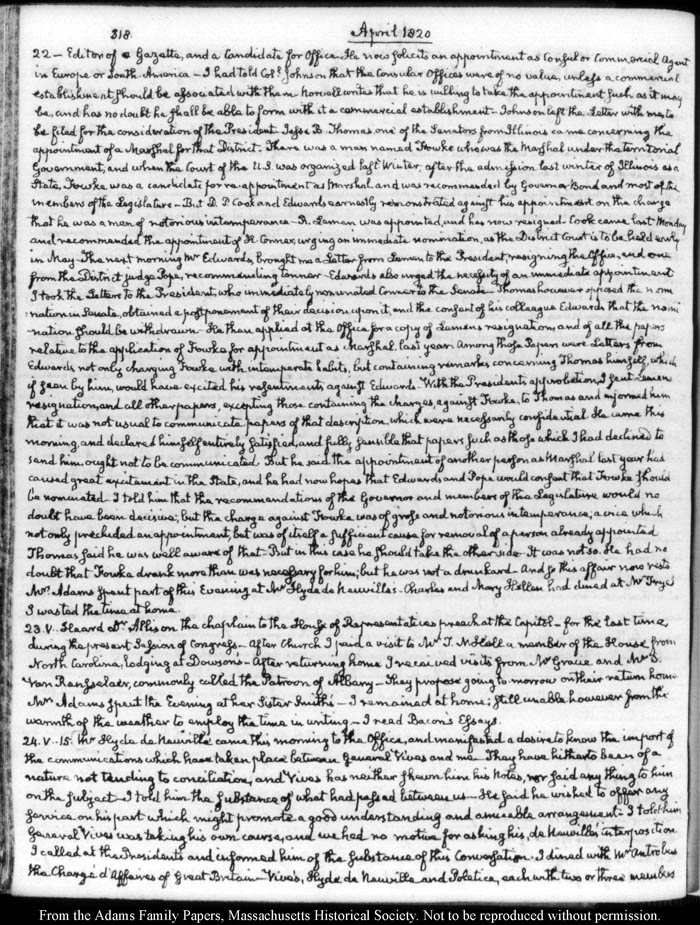 318.
April 1820
22 — Editor of a Gazette, and a Candidate for Office. He now solicits an appointment as Consul or Commercial Agent
in Europe or South America — I had told Coll. Johnson that the Consular Offices were of no value, unless a commercial
establishment should be associated with them. he writes that he is willing to take the appointment such as it may
be, and has no doubt he shall be able to form with it a commercial establishment — Johnson left the Letter with me, to
be filed for the consideration of the President. Jesse B. Thomas, one of the Senators from Illinois came concerning the
appointment of a Marshal for that District. There was a man named Fowke who was the Marshal under the territorial
Government, and when the Court of the U.S. was organized last Winter, after the admission last winter of Illinois as a
State, Fowke was a candidate for re-appointment as Marshal and was recommended by Governor Bond and most of the
members of the Legislature — But D. P. Cook and Edwards earnestly remonstrated against his appointment on the charge
that he was a man of notorious intemperance — R. Lemen was appointed, and has now resigned. Cook came last Monday
and recommended the appointment of H. Conner, urging an immediate nomination, as the District Court is to be held early
in May. The next morning Mr Edwards, brought me a Letter from Lemen to the President, resigning the Office, and one
from the District judge Pope, recommending Conner — Edwards also urged the necessity of an immediate appointment
I took the Letters to the President, who immediately nominated Conner to the Senate. Thomas however opposed the nomi-
nation in Senate, obtained a postponement of their decision upon it, and the consent of his colleague Edwards that the nomi
nation should be withdrawn — He then applied at the Office for a copy of Lemens resignation, and of all the papers
relative to the application of Fowke for appointment as Marshal, last year. Among those Papers were Letters from
Edwards not only charging Fowke with intemperate habits, but containing remarks concerning Thomas himself, which
if seen by him, would have excited his resentments against Edwards. With the Presidents approbation, I sent Lemens
resignation, and all other papers, excepting those containing the charges, against Fowke, to Thomas and informed him
that it was not usual to communicate papers of that description, which were necessarily confidential. He came this
morning, and declared himself entirely satisfied, and fully sensible that papers such as those which I had declined to
send him, ought not to be communicated. But he said the appointment of another person as Marshal last year had
caused great excitement in the State, and he had now hopes that Edwards and Pope would consent that Fowke should
be nominated. I told him that the recommendations of the Governor and members of the Legislature would no
doubt have been decisive; but the charge against Fowke was of gross and notorious intemperance; a vice which
not only precluded an appointment, but was of itself a sufficient cause for removal of a person already appointed.
Thomas said he was well aware of that — But in this case he should take the other side. It was not so. He had no
doubt that Fowke drank more than was necessary for him; but he was not a drunkard. And so this affair now rests
Mrs. Adams spent part of this Evening at Mr Hyde de Neuville's. Charles and Mary Hellen had dined at Mr Frye's
I wasted the time at home.
23. V. Heard Dr. Allison the chaplain to the House of Representatives preach at the Capitol — for the last time,
during the present Session of Congress — After Church I paid a visit to Mr T. N. Hall a member of the House from
North Carolina, lodging at Dowsons — After returning home I received visits from Mr Gracie and Mr S.
Van Rensselaer, commonly called the Patroon of Albany — They propose going to morrow on their return home
Mrs Adams spent the Evening at her Sister Smith's — I remained at home; still unable however from the
warmth of the weather to employ the time in writing — I read Bacon's Essays.
24. V. 15. Mr Hyde de Neuville came this morning to the Office, and manifested a desire to know the import of
the communications which have taken place between General Vives and me. They have hitherto been of a
nature not tending to conciliation, and Vives has neither shewn him his Notes, nor said any thing to him
on the subject — I told him the substance of what had passed between us — He said he wished to offer any
service on his part which might promote a good understanding and amicable arrangement — I told him
General Vives was taking his own course, and we had no motive for asking his, de Neuville's interposition.
I called at the Presidents and informed him of the substance of this Conversation. I dined with Mr Antrobus
the Chargé d'Affaires of Great Britain — Vives, Hyde de Neuville and Poletica, each with two or three members
From the Adams Family Papers, Massachusetts Historical Society. Not to be reproduced without permission.